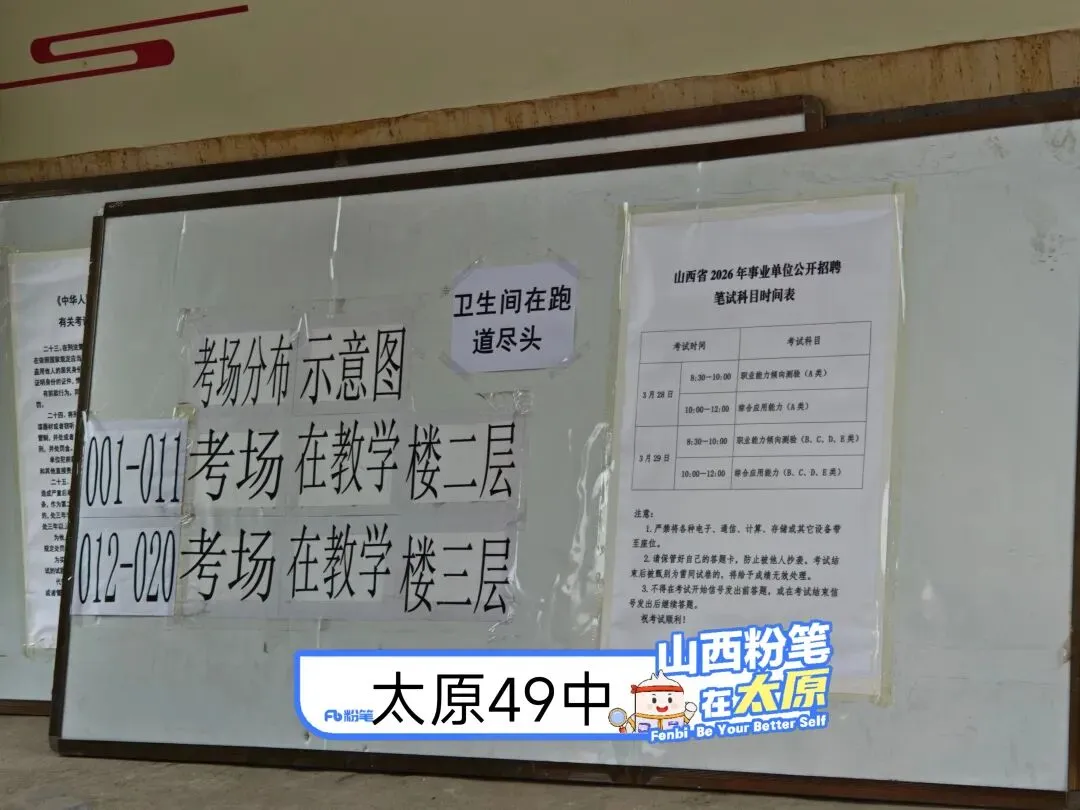 《中华人
有关考
二十三、在刑法第
在依照国家规定应当
盗用他人的居民身份
证明身份的证件，情
有前款行为，同
罚。
二十四、将刑
单位犯前
和其他直接责
二十五、
处三年以上
考场分布示意图
001-011考场在教学楼二层
012-020考场在教学楼三层
卫生间在跑
道尽头
山西省2026年事业单位公开招聘
笔试科目时间表
考试时间 考试科目
3月28日 8:30—10:00 职业能力倾向测验（A类）
10:00—12:00 综合应用能力（A类）
3月29日 8:30—10:00 职业能力倾向测验（B、C、D、E类）
10:00—12:00 综合应用能力（B、C、D、E类）
注意：
1.严禁将各种电子、通信、计算、存储或其它设备带
至座位。
2.请保管好自己的答题卡，防止被他人抄袭。考试结
束后被甄别为雷同试卷的，将给予成绩无效处理。
3.不得在考试开始信号发出前答题，或在考试结束信
号发出后继续答题。
祝考试顺利！
Fb粉笔
太原49中
山西粉笔
在太原
Fenbi Be Your Better Self